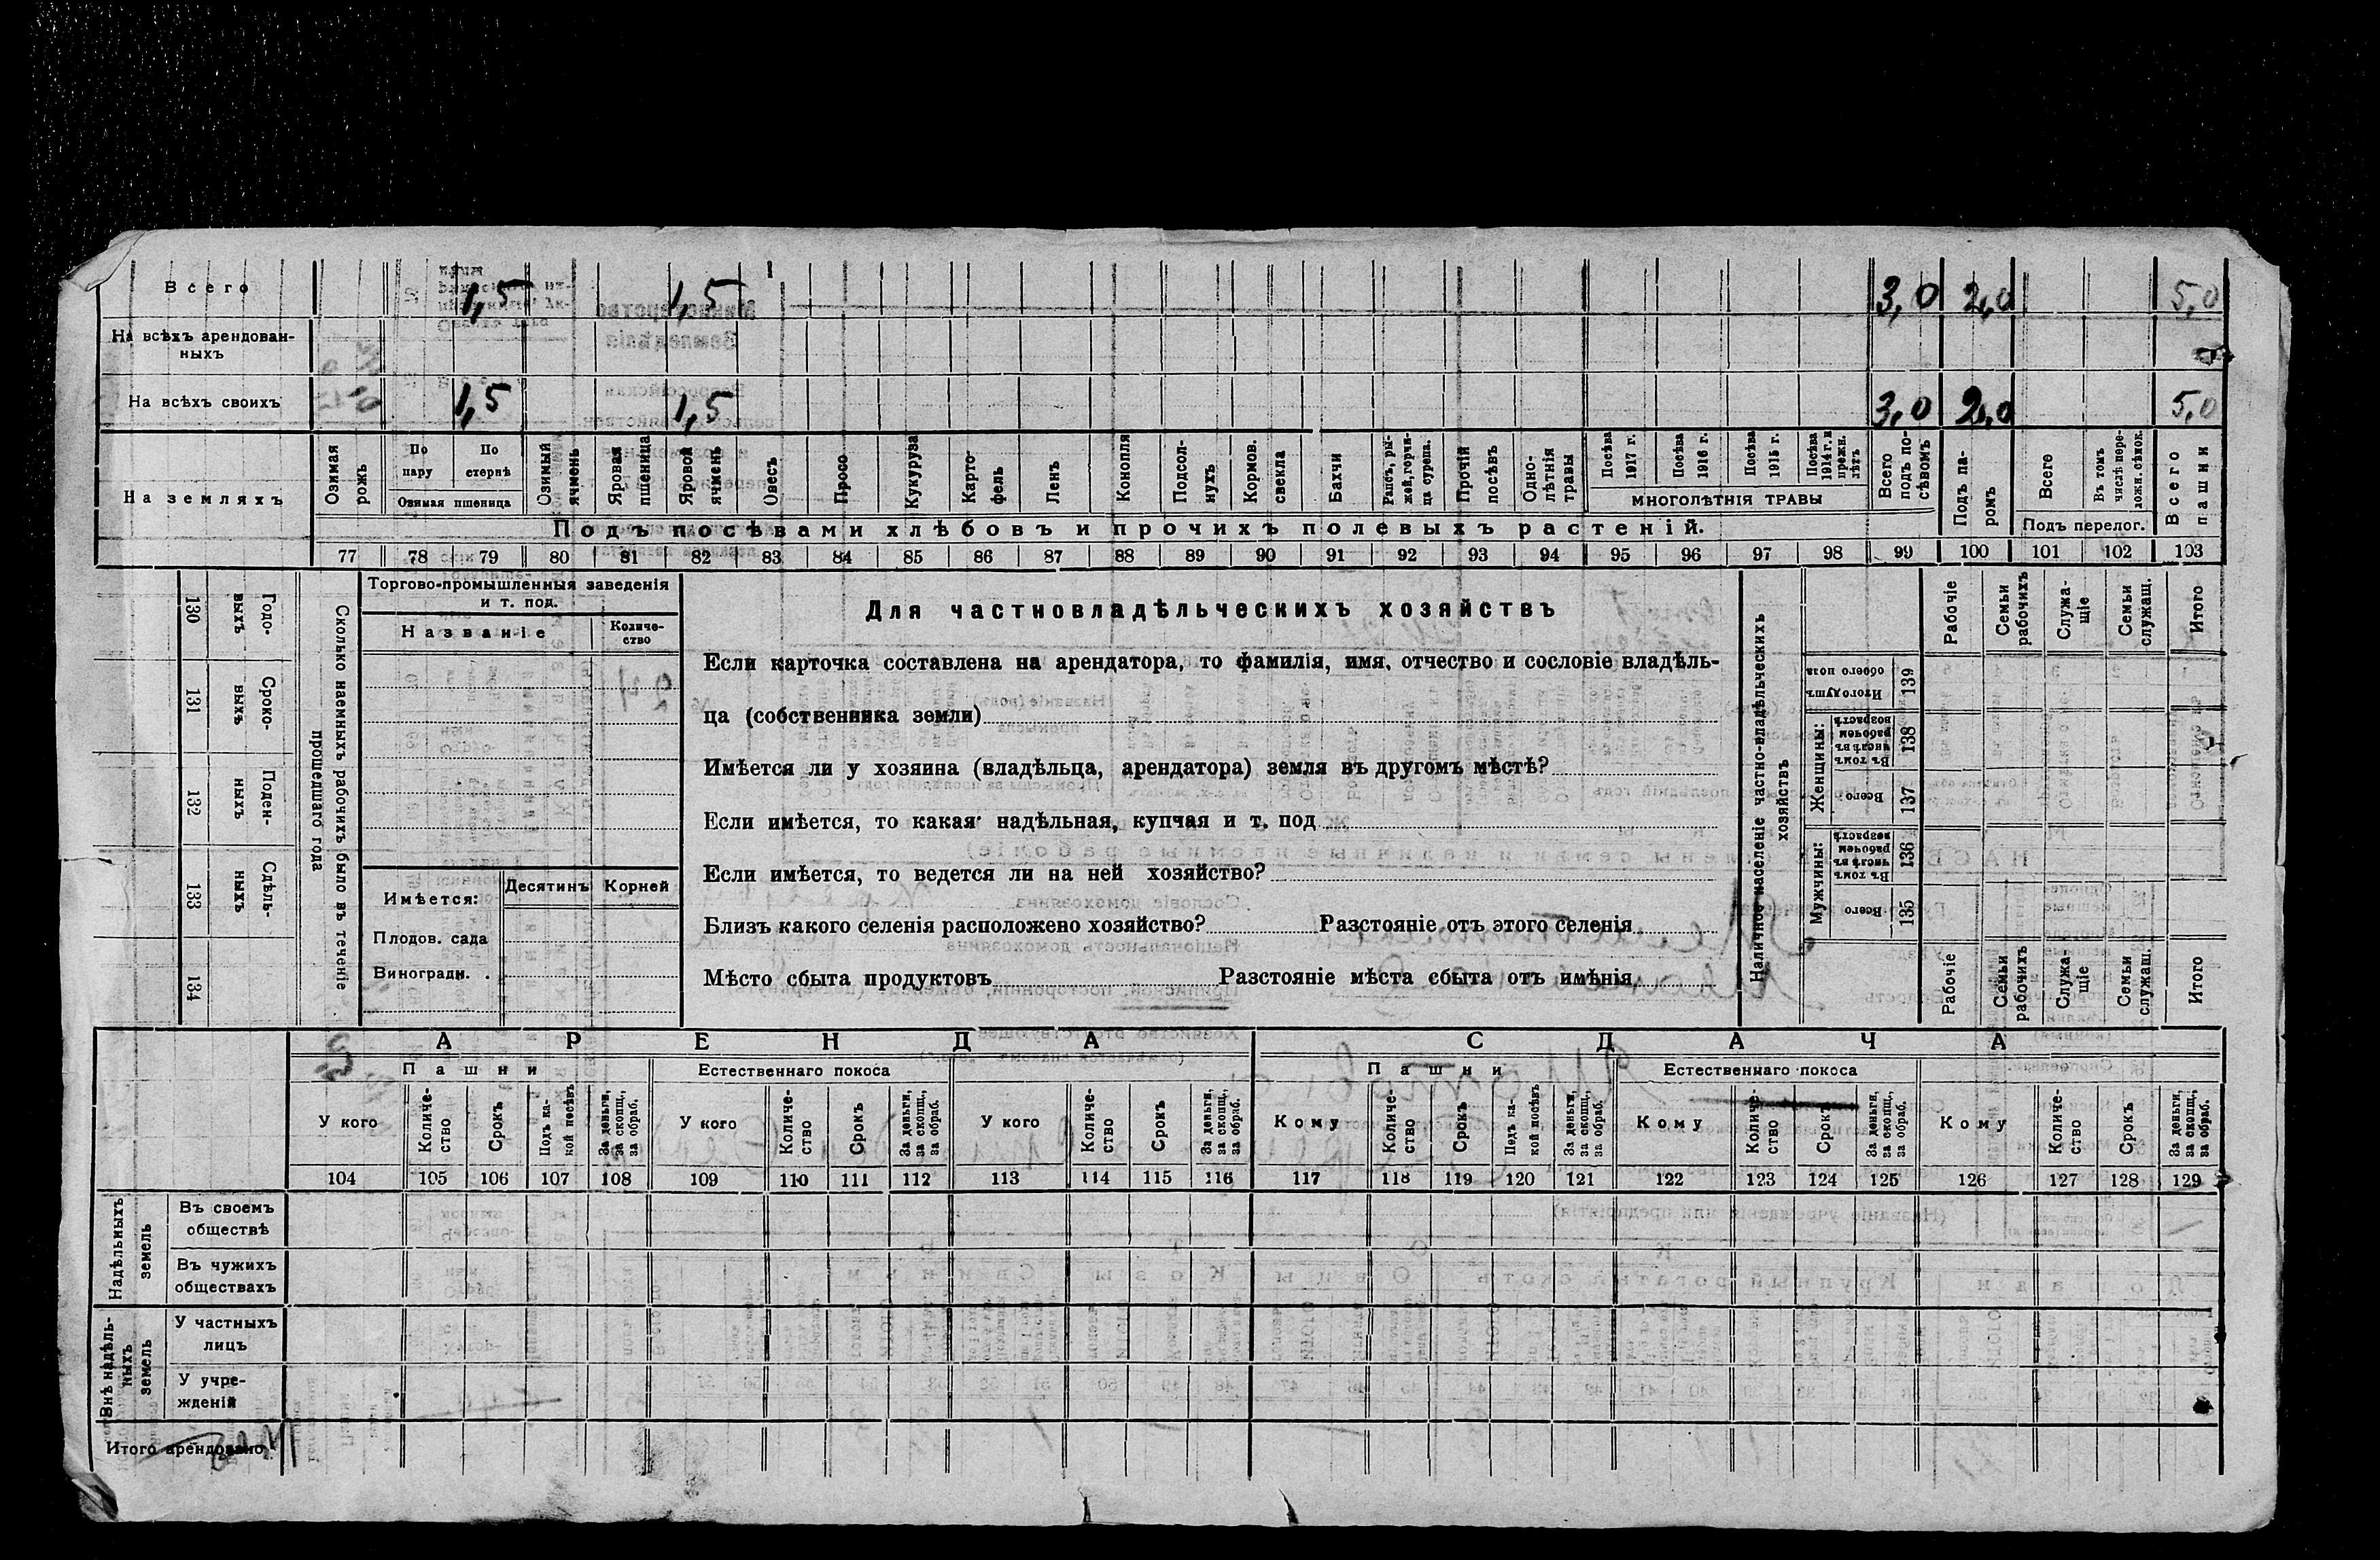 Всего 1,5 1,5 3,0 2,0 5,0
На всѣхъ арендован-
ныхъ
На всѣхъ своихъ 1,5 1,5 3,0 2,0 5,0
На земляхъ
Озимая рожь
По пару
По стернѣ
Озимая пшеница
Озимый ячмень
Яровая пшеница
Яровой ячмень
Овесъ
Просо
Кукуруза
Карто-
фель
Ленъ
Конопля
Подсол-
нухъ
Кормов.
свекла
Бахчи
Рапсъ, ры-
жей, горчи-
ца сурепа.
Прочій
посѣвъ
Одно-
лѣтнія
травы
Посѣва
1917 г.
Посѣва
1916 г.
Посѣва
1915 г.
Посѣва
1914 г. и
прежн.
лѣтъ
МНОГОЛѢТНІЯ ТРАВЫ
Всего
подъ по-
сѣвомъ
Подъ па-
ромъ
Всего
Въ томъ
числѣ пере-
ложн. сѣнок.
Подъ перелог.
Всего
пашни
Подъ посѣвами хлѣбовъ и прочихъ полевыхъ растеній.
77 78 79 80 81 82 83 84 85 86 87 88 89 90 91 92 93 94 95 96 97 98 99 100 101 102 103
130 Годо-
выхъ
131 Сроко-
выхъ
132 Поден-
ныхъ
133 Сдѣль-
ныхъ
134
Сколько наемныхъ рабочихъ было въ теченіе
прошедшаго года
Торгово-промышленныя заведенія
и т. под.
Названіе
Количе-
ство
Имѣется:
Десятинъ
Корней
Плодов. сада
Виноградн.
Для частновладѣльческихъ хозяйствъ
Если карточка составлена на арендатора, то фамилія, имя, отчество и сословіе владѣль-
ца (собственника земли)
Имѣется ли у хозяина (владѣльца, арендатора) земля въ другомъ мѣстѣ?
Если имѣется, то какая надѣльная, купчая и т. под
Если имѣется, то ведется ли на ней хозяйство?
Близъ какого селенія расположено хозяйство? Разстояніе отъ этого селенія
Мѣсто сбыта продуктовъ Разстояніе мѣста сбыта отъ имѣнія
Наличное населеніе частно-владѣльческихъ
хозяйствъ
Рабочіе
Семьи
рабочихъ
Служа-
щіе
Семьи
служащ.
Итого
Итого душъ
обоего пола
139
Женщины:
Въ томъ
числѣ въ
рабочемъ
возрастѣ
138
Всего
137
Мужчины:
Въ томъ
числѣ въ
рабочемъ
возрастѣ
136
Всего
135
Рабочіе
Семьи
рабочихъ
Служа-
щіе
Семьи
служащ.
Итого
АРЕНДА СДАЧА
Пашни Естественнаго покоса Пашни Естественнаго покоса
У кого
Количе-
ство
Срокъ
Подъ ка-
кой посѣвъ
За деньги,
за скопщ.,
за обраб.
У кого
Количе-
ство
Срокъ
За деньги,
за скопщ.,
за обраб.
У кого
Количе-
ство
Срокъ
За деньги,
за скопщ.,
за обраб.
Кому
Количе-
ство
Срокъ
Подъ ка-
кой посѣвъ
За деньги,
за скопщ.,
за обраб.
Кому
Количе-
ство
Срокъ
За деньги,
за скопщ.,
за обраб.
Кому
Количе-
ство
Срокъ
За деньги,
за скопщ.,
за обраб.
104 105 106 107 108 109 110 111 112 113 114 115 116 117 118 119 120 121 122 123 124 125 126 127 128 129
Надѣльныхъ
земель
Въ своемъ
обществѣ
Въ чужихъ
обществахъ
Внѣ надѣль-
ныхъ
земель
У частныхъ
лицъ
У учре-
жденій
Итого арендовано